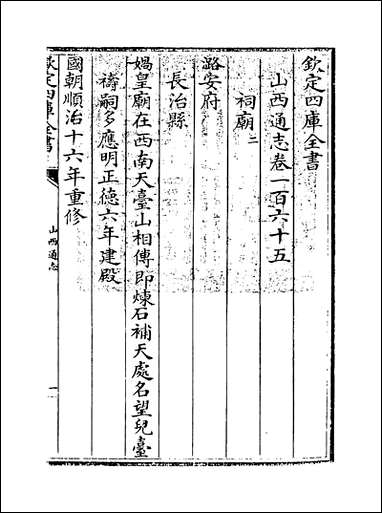 欽定四庫全書
山西通志卷一百六十五
祠廟二
潞安府
長治縣
媧皇廟在西南天臺山相傳即煉石補天處名望兒臺
禱嗣多應明正德六年建殿
國朝順治十六年重修
欽定四庫全書
山西通志
一